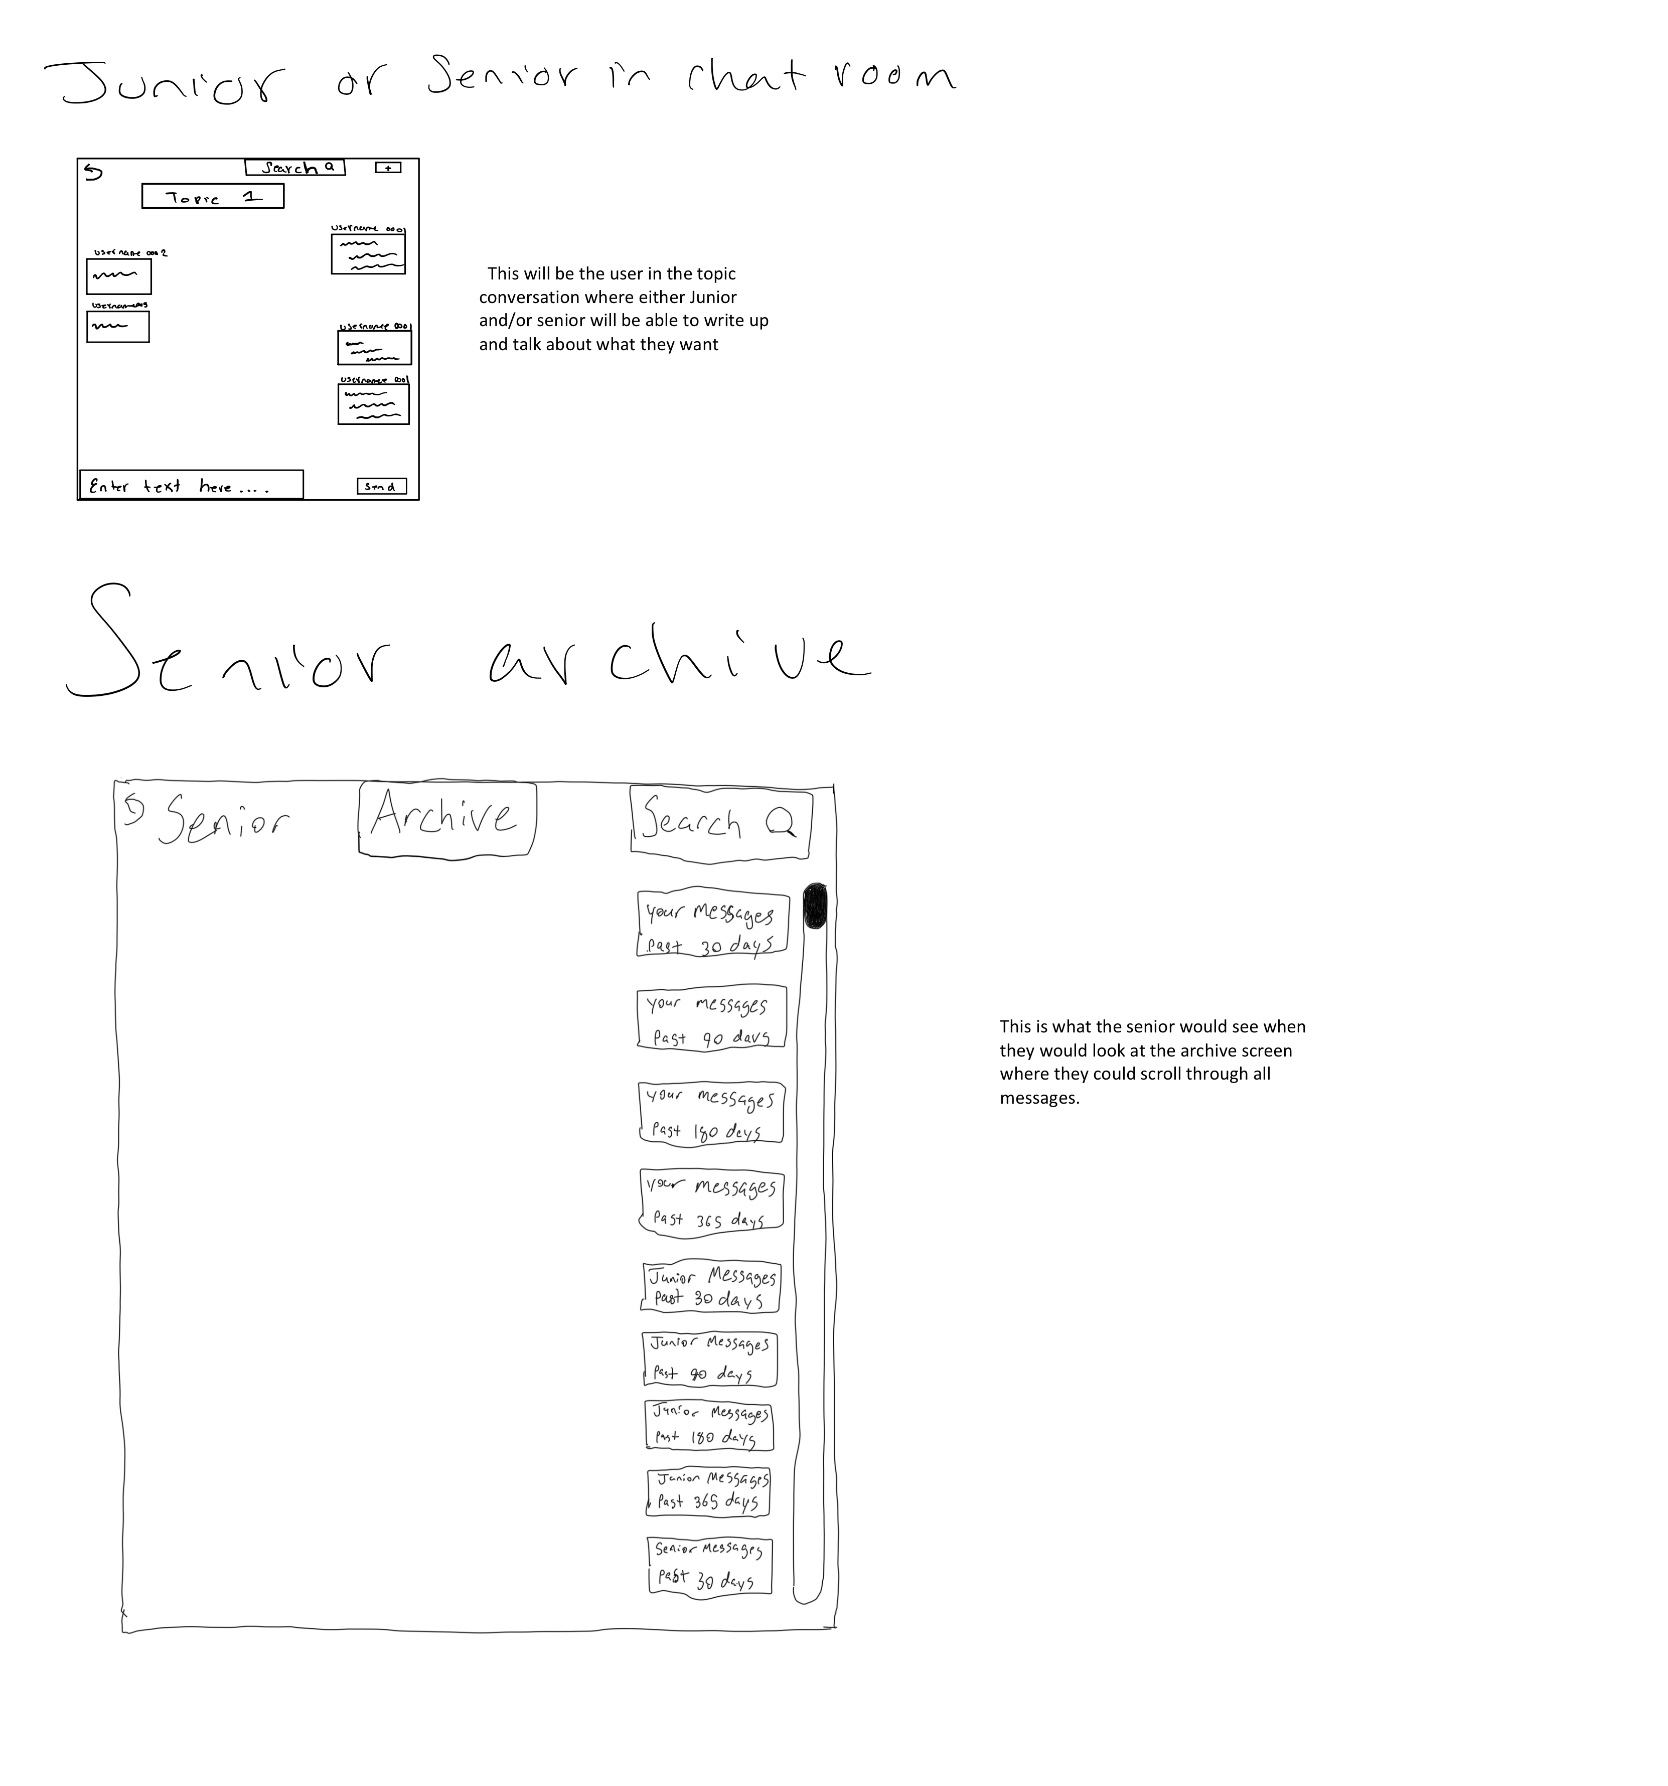 Junior or Senior in chat room
Search
+
Topic 1
Username 0001
Username 0002
Username 0001
Username 0001
Enter text here ....
Send
This will be the user in the topic
conversation where either Junior
and/or senior will be able to write up
and talk about what they want
Senior archive
Senior
Archive
Search
your messages
Past 30 days
your messages
Past 90 days
your messages
Past 180 days
your messages
Past 365 days
Junior Messages
Past 30 days
Junior Messages
Past 90 days
Junior Messages
Past 180 days
Junior Messages
Past 365 days
Senior Messages
Past 30 days
This is what the senior would see when
they would look at the archive screen
where they could scroll through all
messages.